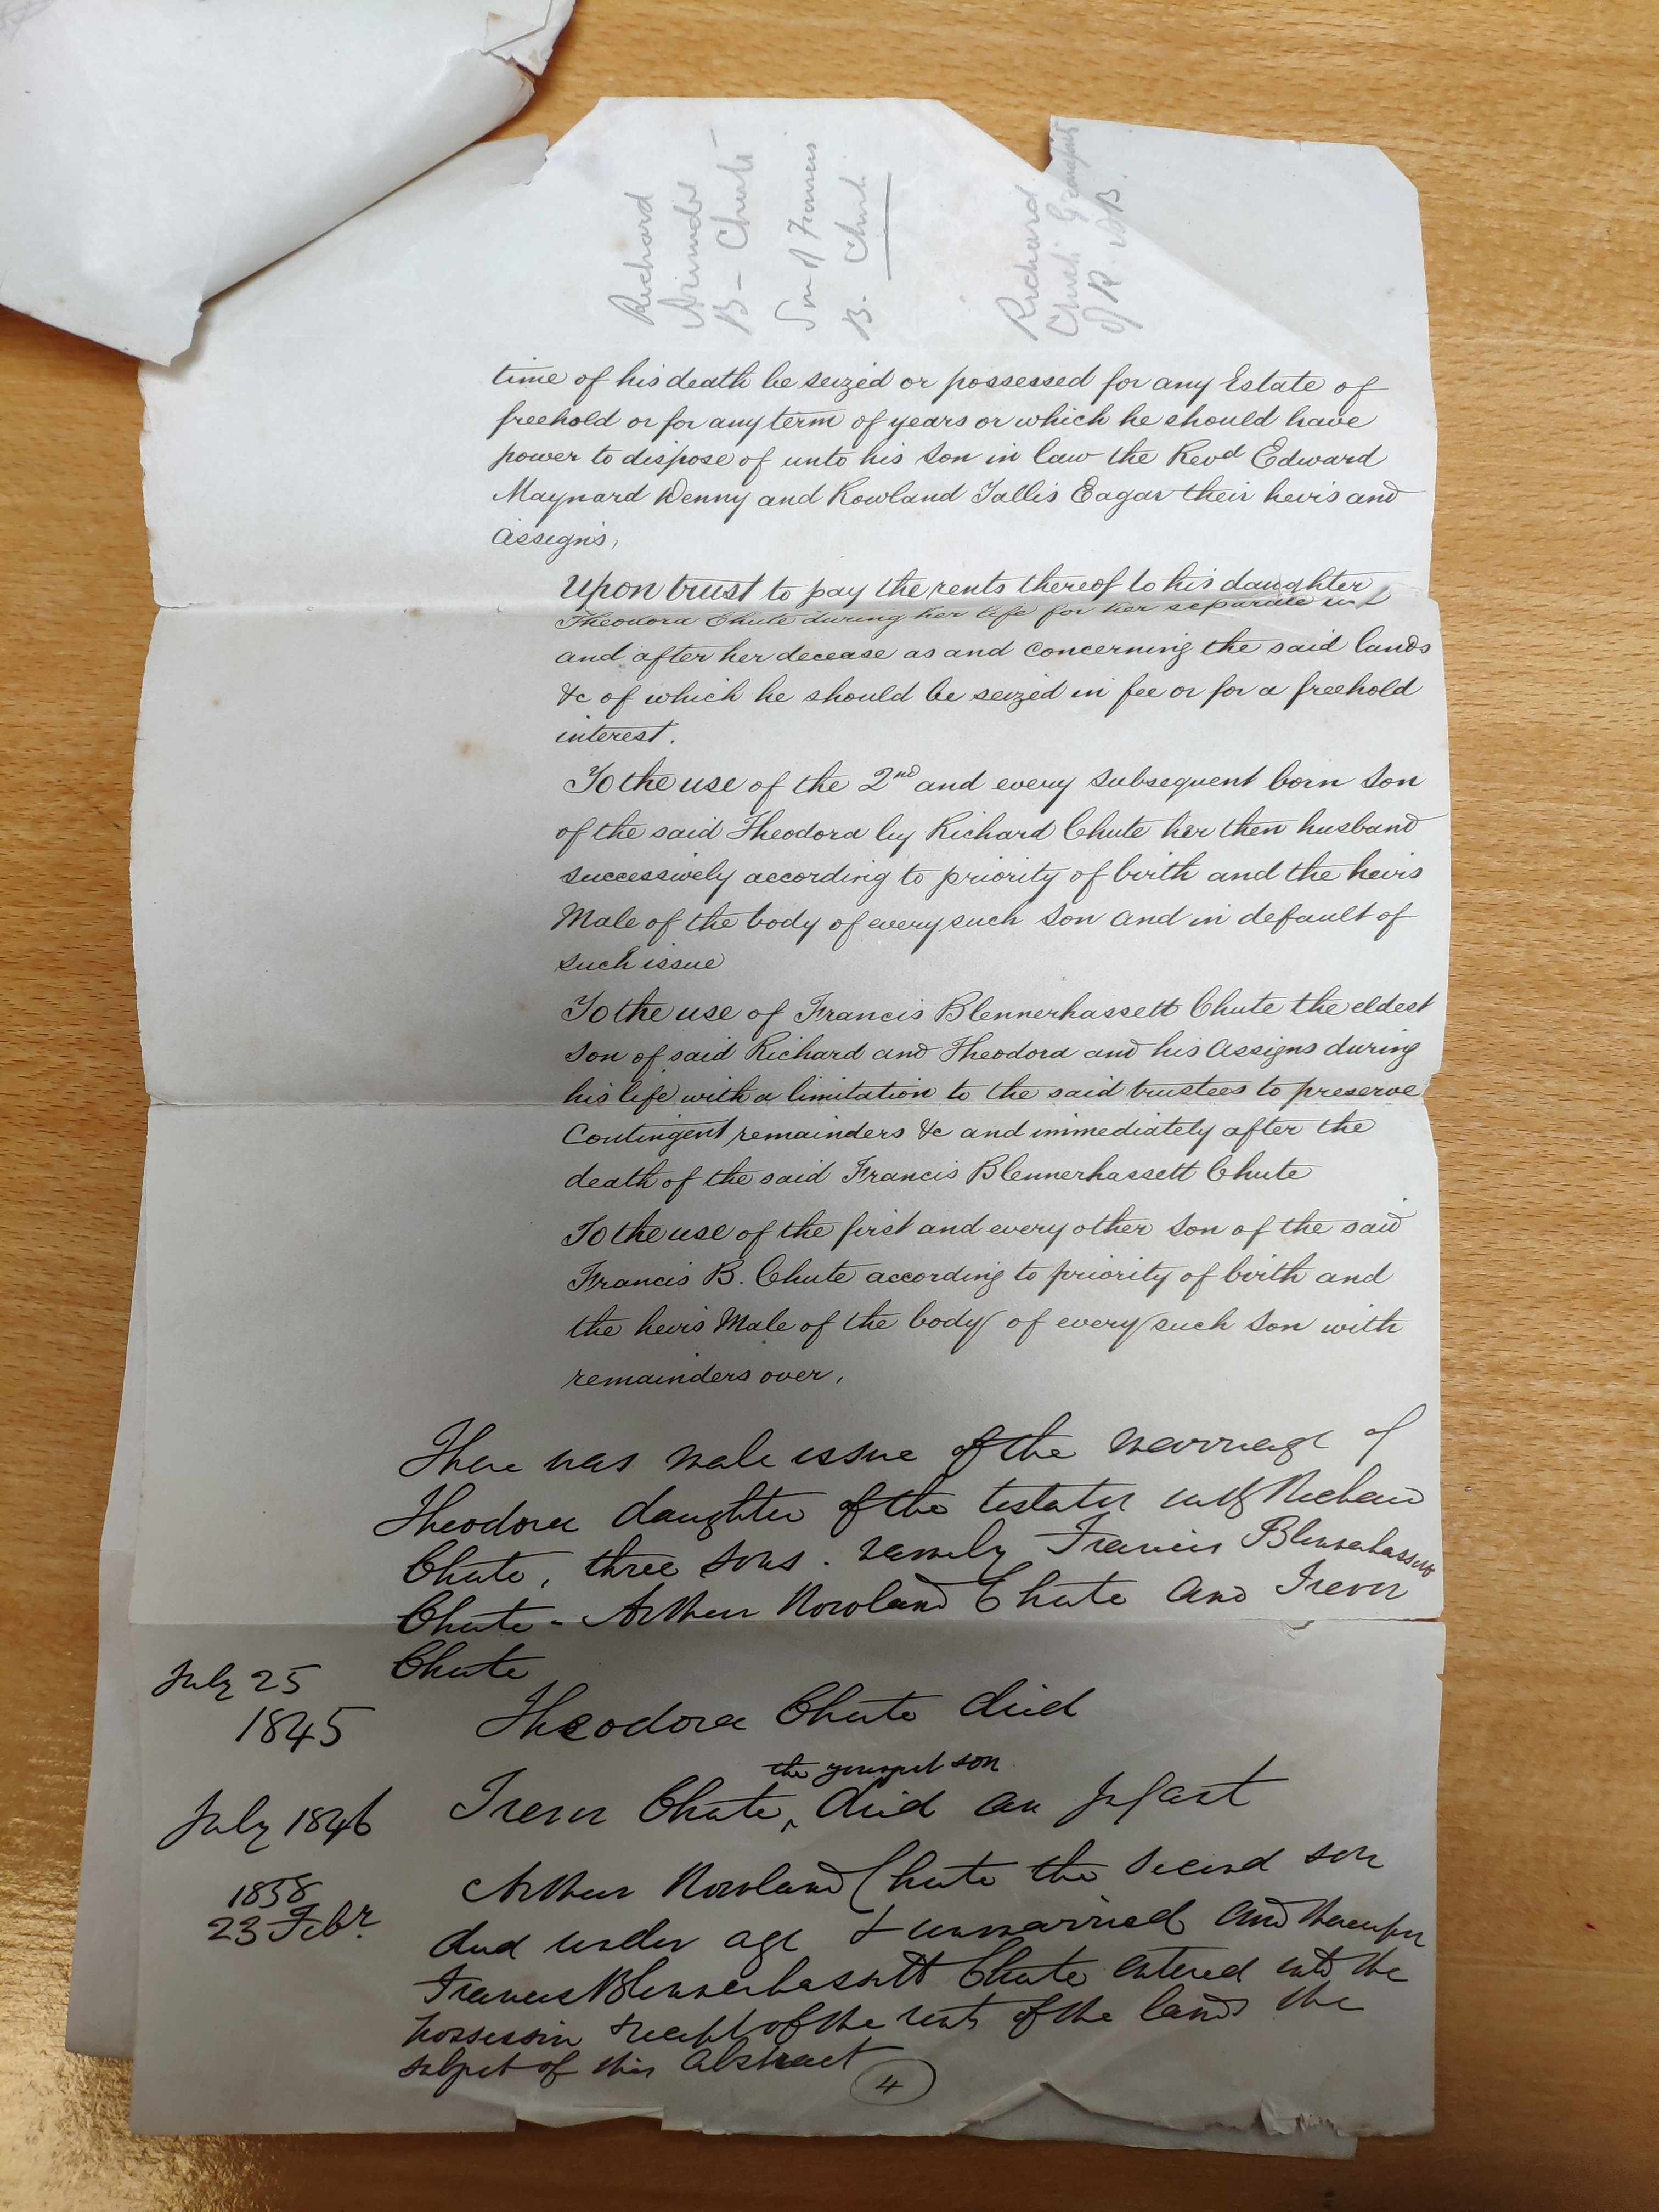 Richard
Arundel
B - Chute
Son of Francis
B. Chute
Richard
Chute Grandfather
of R. A B.
time of his death be seized or possessed for any Estate of
freehold or for any term of years or which he should have
power to dispose of unto his Son in law the Revd Edward
Maynard Denny and Rowland Tallis Eagar their heirs and
assigns,
Upon trust to pay the rents thereof to his daughter
Theodora Chute during her life for her separate use
and after her decease as and concerning the said lands
&c of which he should be seized in fee or for a freehold
interest.
To the use of the 2nd and every subsequent born Son
of the said Theodora by Richard Chute her then husband
successively according to priority of birth and the heirs
Male of the body of every such Son and in default of
such issue
To the use of Francis Blennerhassett Chute the eldest
Son of said Richard and Theodora and his assigns during
his life with a limitation to the said trustees to preserve
Contingent remainders &c and immediately after the
death of the said Francis Blennerhassett Chute
To the use of the first and every other Son of the said
Francis B. Chute according to priority of birth and
the heirs Male of the body of every such Son with
remainders over,
There was male issue of the marriage of
Theodora daughter of the testator with Richard
Chute, three sons. namely Francis Blennerhassett
Chute - Arthur Rowland Chute and Trevor
Chute
July 25
1845
Theodora Chute died
the youngest son
July 1846
Trevor Chute, died an Infant
1858
23 Febr.
Arthur Rowland Chute the second son
died under age & unmarried and thereupon
Francis Blennerhassett Chute entered into the
possession & receipt of the rents of the lands the
subject of this Abstract
4